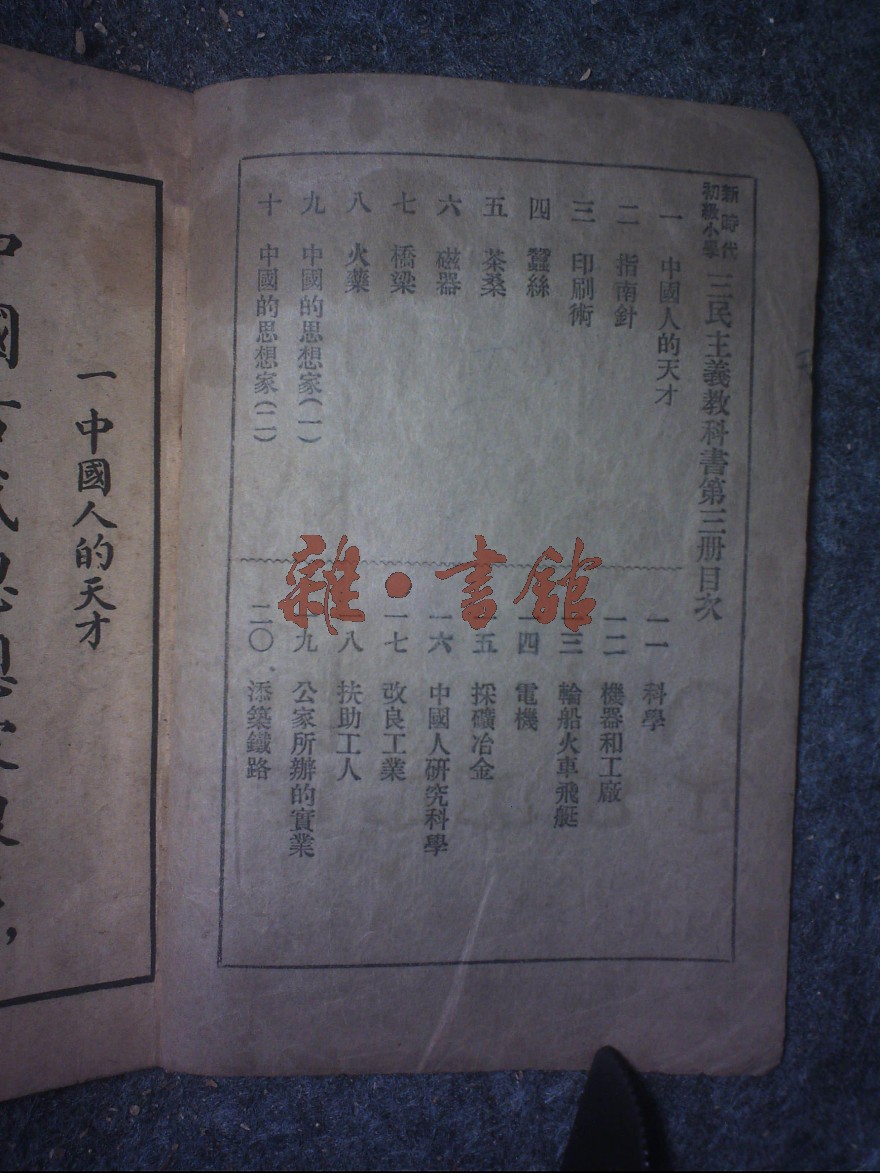 新時代
初級小學
三民主義教科書第三册目次
一 中國人的天才
二 指南針
三 印刷術
四 蠶絲
五 茶桑
六 磁器
七 橋梁
八 火藥
九 中國的思想家(一)
十 中國的思想家(二)
一一 科學
一二 機器和工廠
一三 輪船火車飛艇
一四 電機
一五 採礦冶金
一六 中國人研究科學
一七 改良工業
一八 扶助工人
一九 公家所辦的實業
二〇、添築鐵路
雜·書館
一 中國人的天才